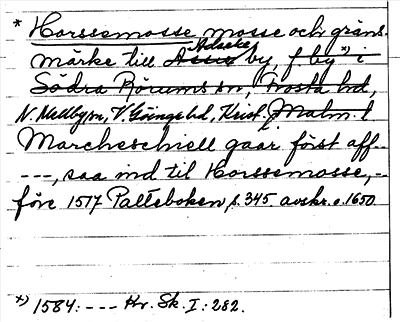 * Horssemosse mosse och gräns-
märke till Assee Adseke by, f. by *) i
Södra Rörums sn, Frosta hd,
N. Mellby sn, V. Göinge hd, Krist. l. Malm. l
Marcheschiell gaar först aff
---, saa ind til Horssemosse, -
före 1517 Palteboken s. 345 avskr. o. 1650.
*) 1584: --- Kr. Sk. I: 282.